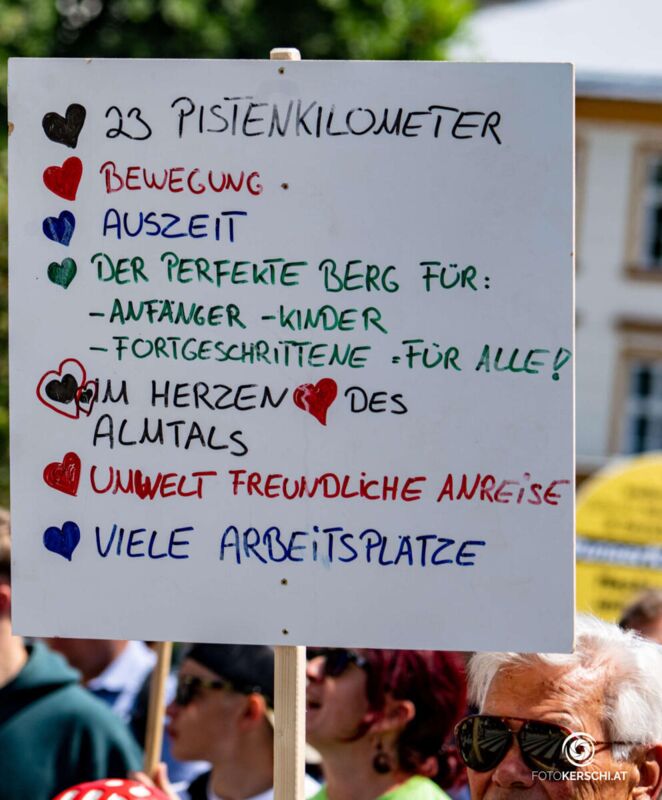 23 PISTENKILOMETER
BEWEGUNG
AUSZEIT
DER PERFEKTE BERG FÜR:
-ANFÄNGER -KINDER
-FORTGESCHRITTENE =FÜR ALLE!
IM HERZEN DES
ALMTALS
UMWELT FREUNDLICHE ANREISE
VIELE ARBEITSPLÄTZE
FOTOKERSCHI.AT